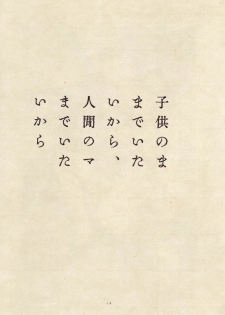 子供のま
までいた
いから、
人間のマ
までいた
いから